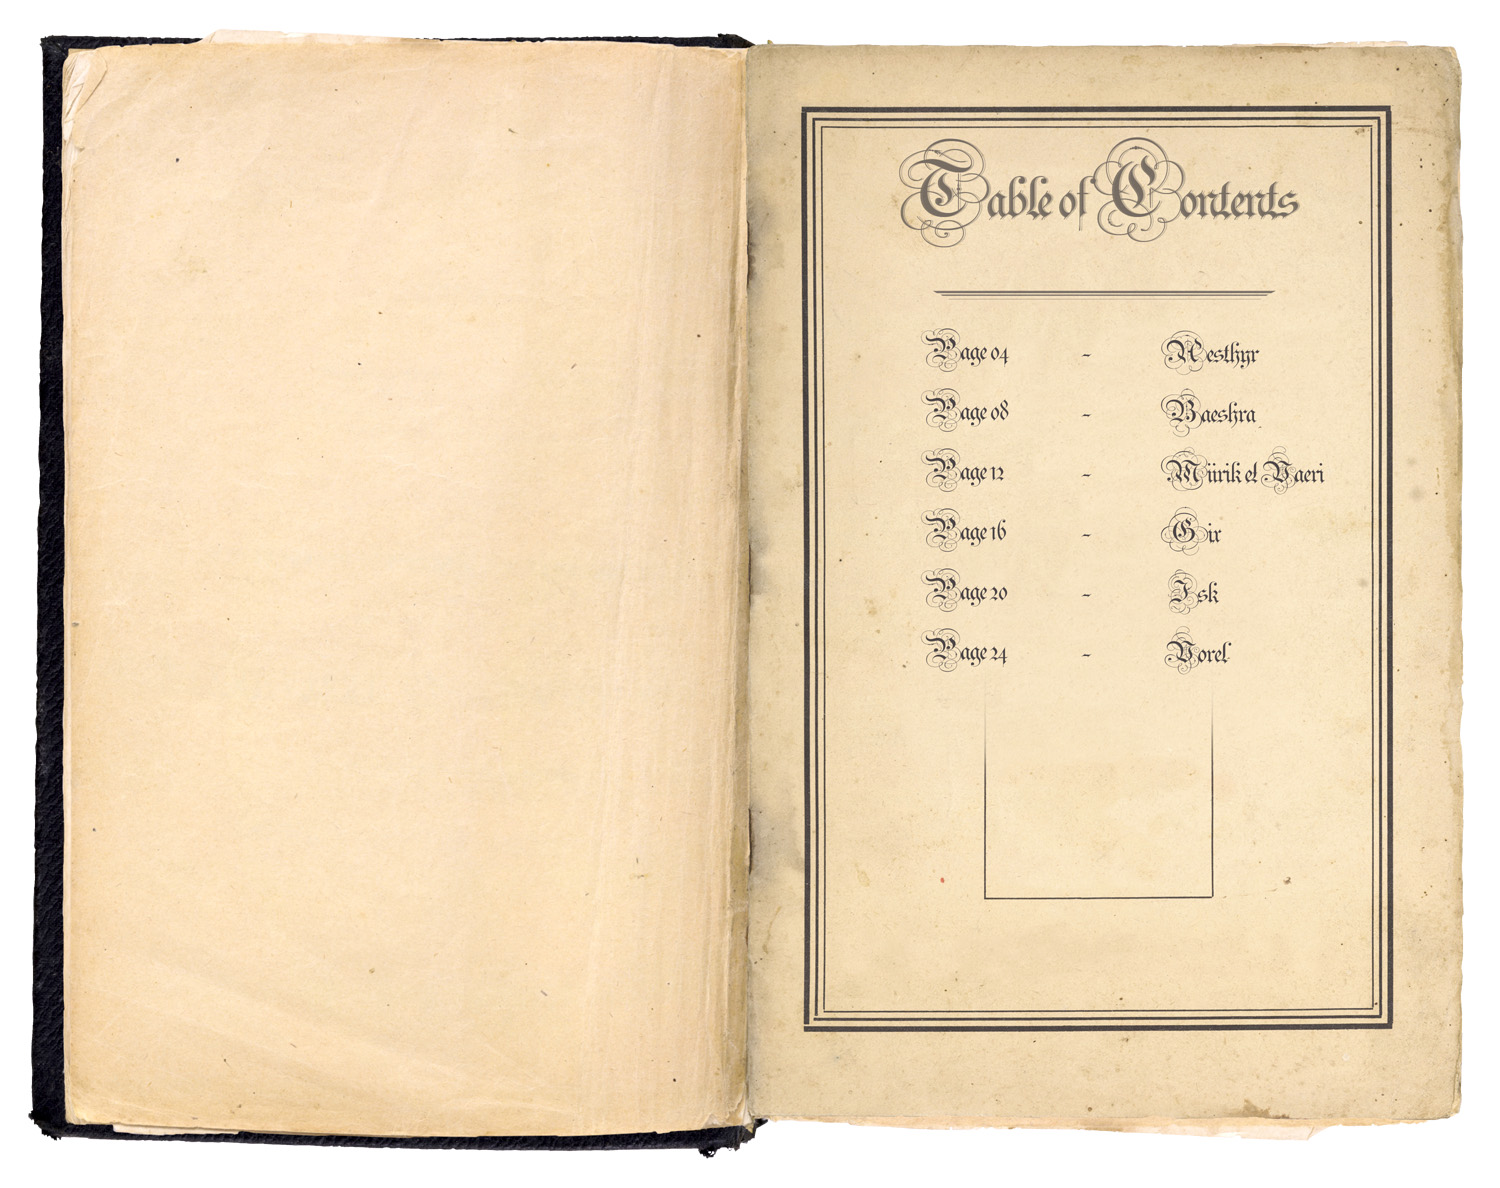 Table of Contents
Page 04 - Aesthyr
Page 08 - Baeshra
Page 12 - Miirik el Vaeri
Page 16 - Gix
Page 20 - Isk
Page 24 - Vorel